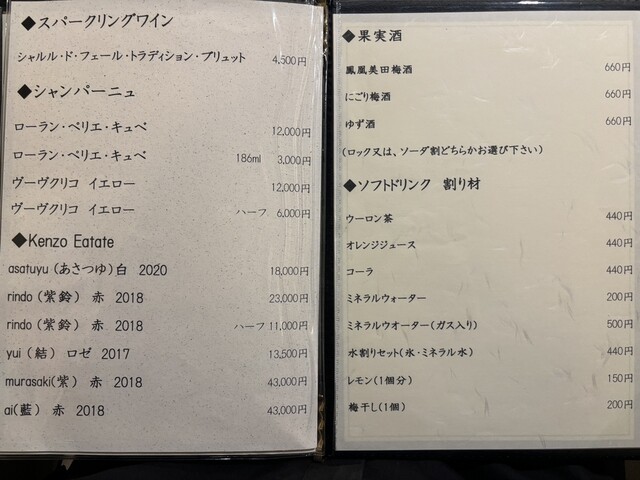 ◆スパークリングワイン
シャルル・ド・フェール・トラディション・ブリュット 4,500円
◆シャンパーニュ
ローラン・ペリエ・キュペ 12,000円
ローラン・ペリエ・キュペ 186ml 3,000円
ヴーヴクリコ イエロー 12,000円
ヴーヴクリコ イエロー ハーフ 6,000円
◆Kenzo Eatate
asatuyu (あさつゆ) 白 2020 18,000円
rindo (紫鈴) 赤 2018 23,000円
rindo (紫鈴) 赤 2018 ハーフ 11,000円
yui (結) ロゼ 2017 13,500円
murasaki(紫) 赤 2018 43,000円
ai(藍) 赤 2018 43,000円
◆果実酒
鳳凰美田梅酒 660円
にごり梅酒 660円
ゆず酒 660円
(ロック又は、ソーダ割どちらかお選び下さい)
◆ソフトドリンク 割り材
ウーロン茶 440円
オレンジジュース 440円
コーラ 440円
ミネラルウォーター 200円
ミネラルウオーター(ガス入り) 500円
水割りセット(氷・ミネラル水) 440円
レモン(1個分) 150円
梅干し(1個) 200円